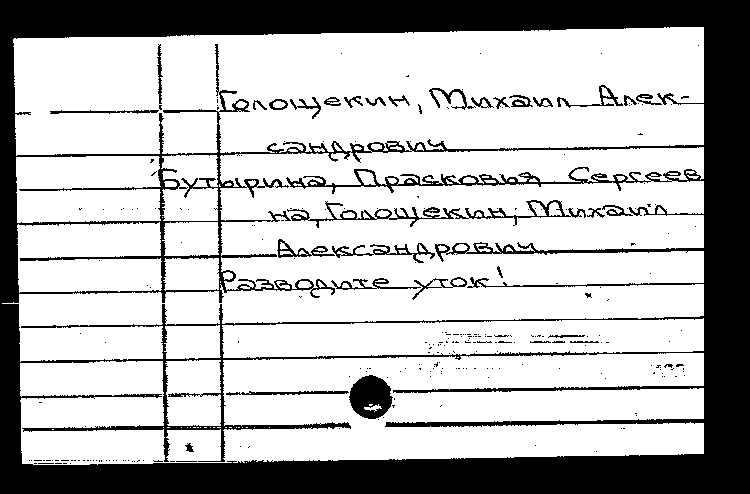 Голощекин, Михаил Алек-
сандрович
Бутырина, Прасковья Сергеев
на, Голощекин, Михаил
Александрович
Разводите уток!